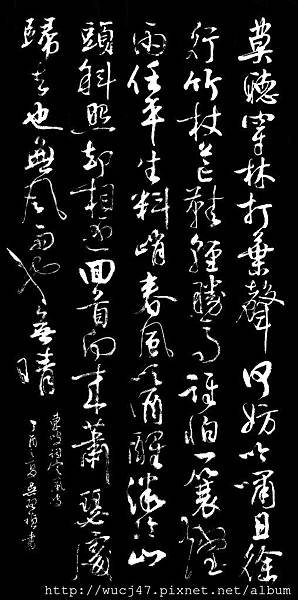 莫聽穿林打葉聲何妨吟嘯且徐
行竹杖芒鞋輕勝馬誰怕一蓑煙
雨任平生料峭春風吹酒醒微冷山
頭斜照却相迎回首向來蕭瑟處
歸去也無風雨也無晴
東坡詞定風波
丁酉之夏 書
http://wucj47.pixnet.net/album